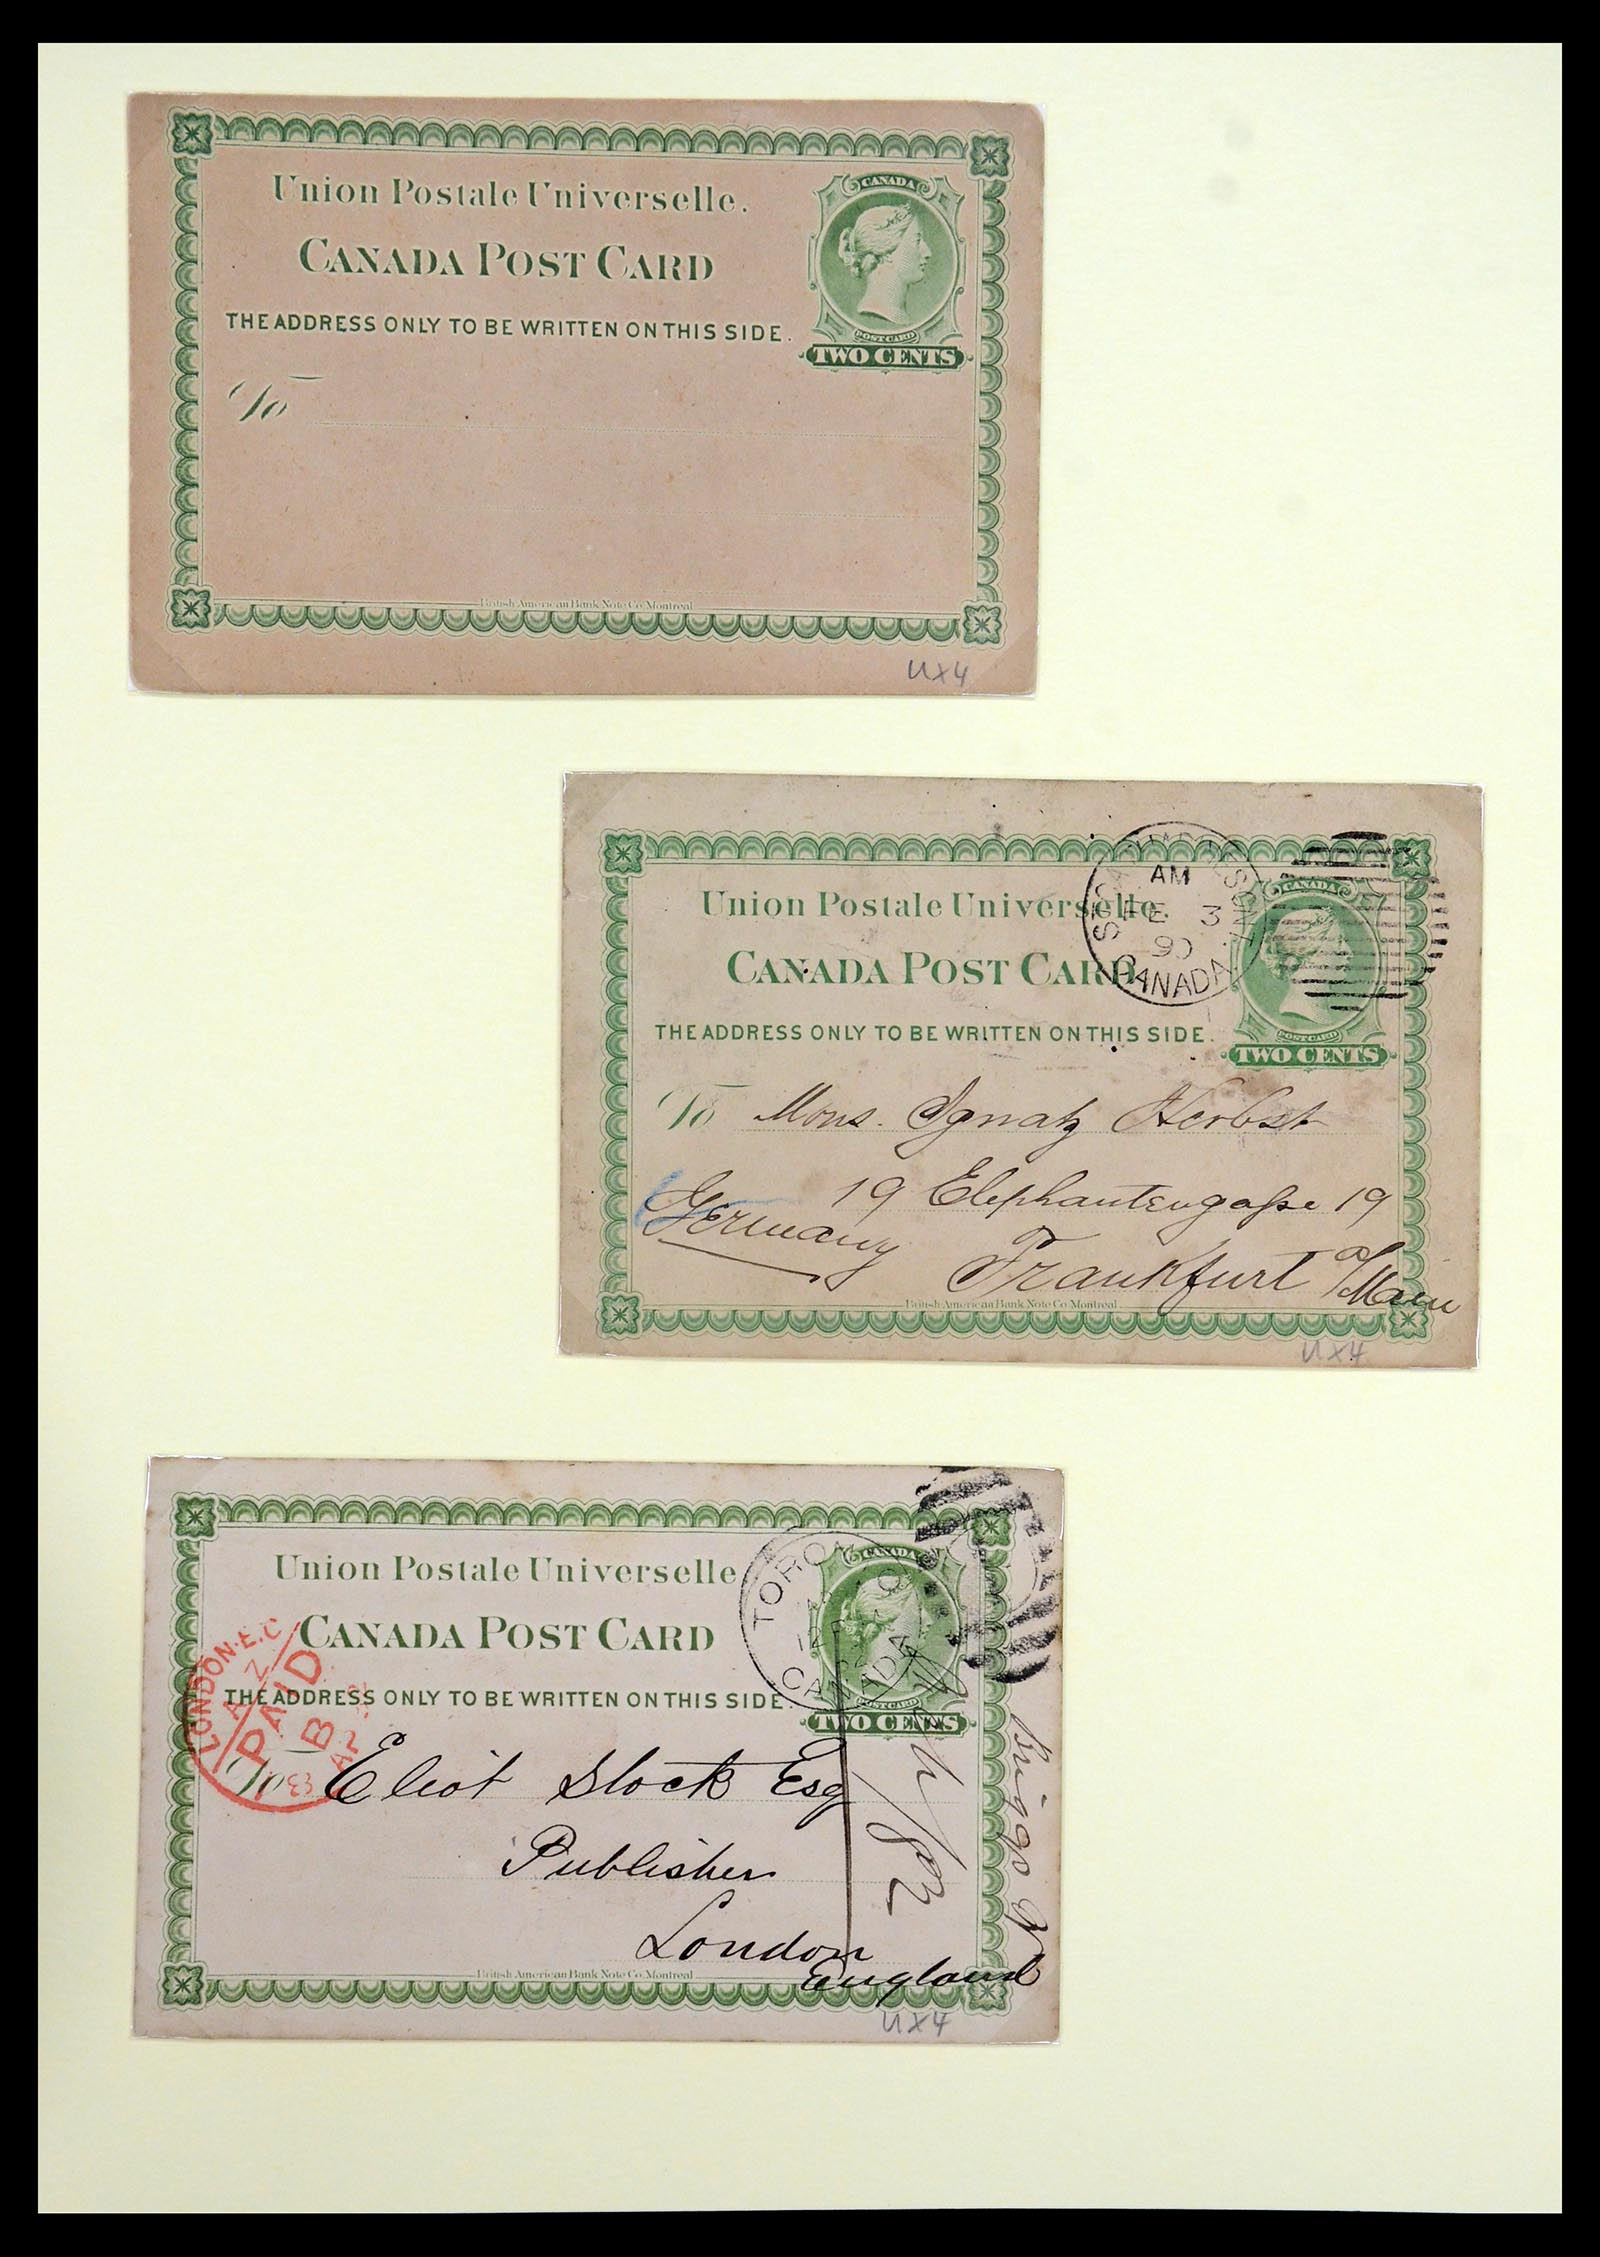 Union Postale Universelle.
CANADA POST CARD
THE ADDRESS ONLY TO BE WRITTEN ON THIS SIDE.
CANADA
POST CARD
TWO CENTS
To
British American Bank Note Co. Montreal
UX4
AM
FE 3
90
CANADA
Union Postale Universelle.
CANADA POST CARD
THE ADDRESS ONLY TO BE WRITTEN ON THIS SIDE.
CANADA
POST CARD
TWO CENTS
To Mons. Ignatz Herbst
19 Elephantengasse 19
Germany
Frankfurt a/Main
British American Bank Note Co. Montreal
UX4
Union Postale Universelle
CANADA POST CARD
THE ADDRESS ONLY TO BE WRITTEN ON THIS SIDE.
CANADA
POST CARD
TWO CENTS
TORO
CANADA
LONDON.E.C
AZ
PAID
B
AP
To Eliot Stock Esq
Publisher
London
England
Briggs
British American Bank Note Co. Montreal
UX4